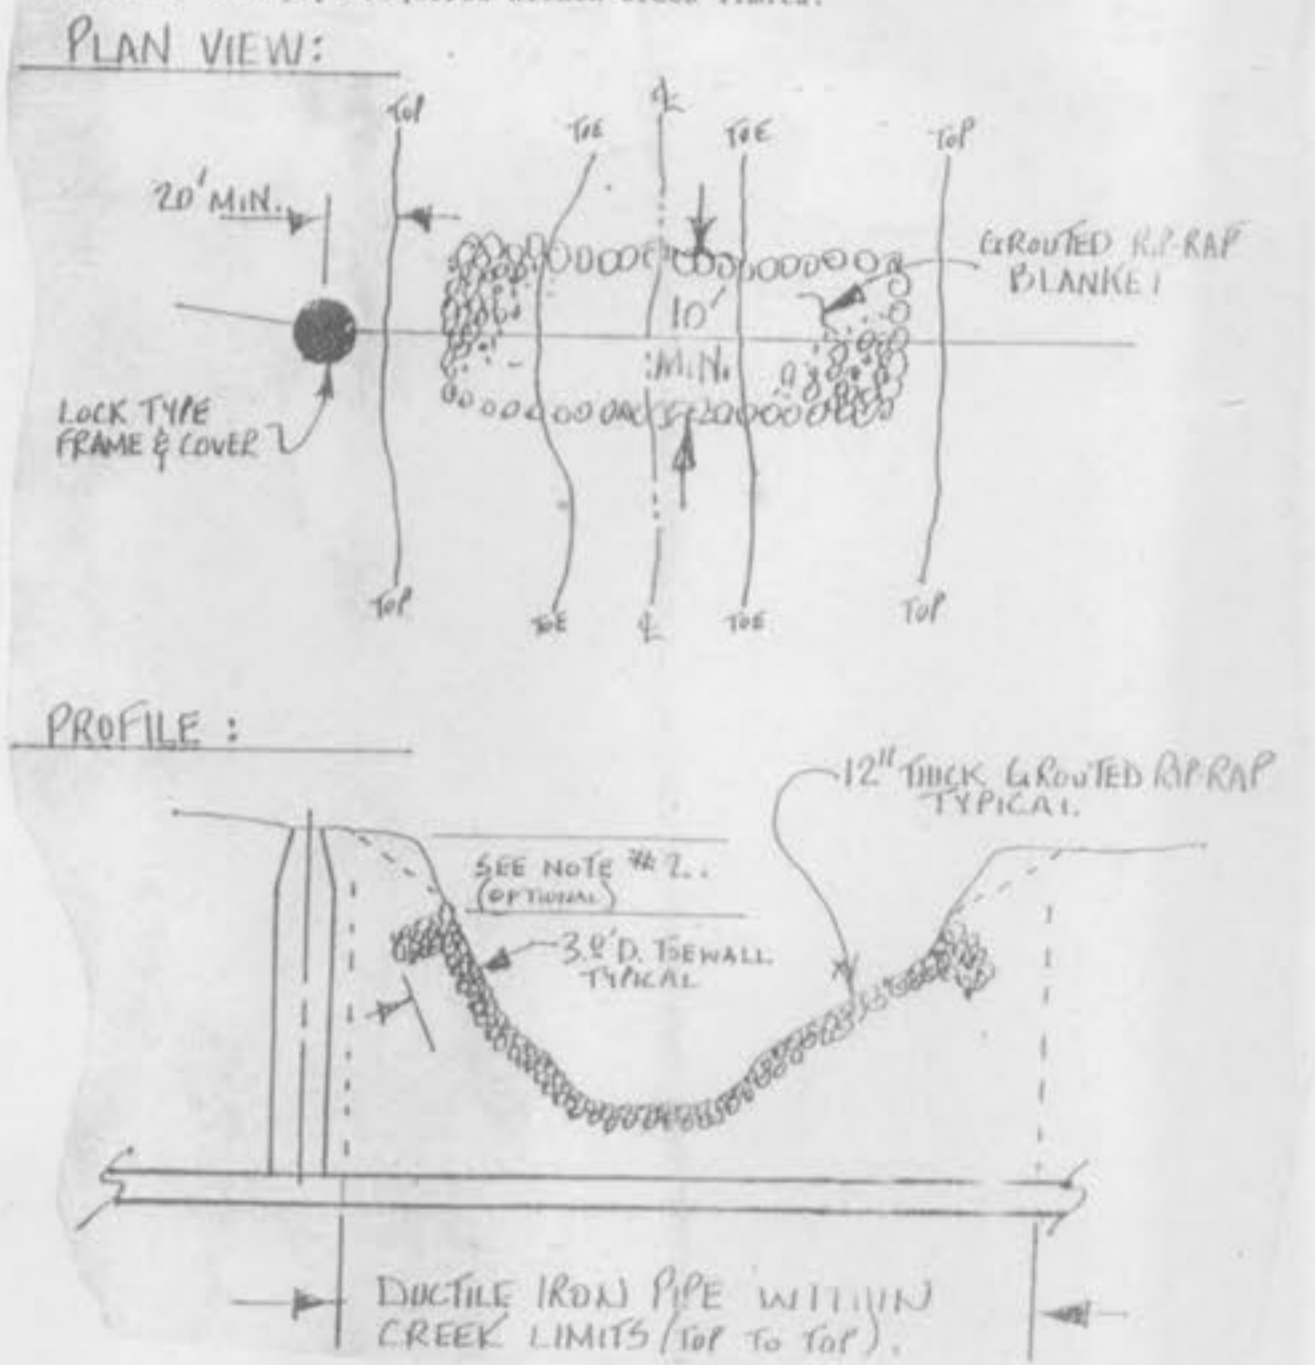 PLAN VIEW:
TOP
TOE
℄
TOE
TOP
20' MIN.
GROUTED RIP-RAP
BLANKET
10'
MIN.
LOCK TYPE
FRAME & COVER
TOP
TOE
℄
TOE
TOP
PROFILE:
12" THICK GROUTED RIP-RAP
TYPICAL
SEE NOTE #2.
(OPTIONAL)
3.0' D. TOEWALL
TYPICAL
DUCTILE IRON PIPE WITHIN
CREEK LIMITS (TOP TO TOP).